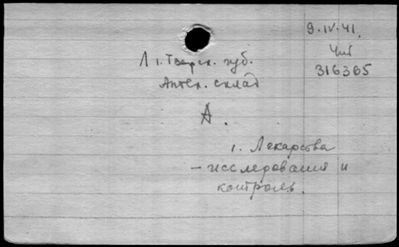 9.IV.41.
Чит
316365
Л 1. Тверск. губ.
Аптек. склад
А.
1. Лекарства
– исследования и
контроль.